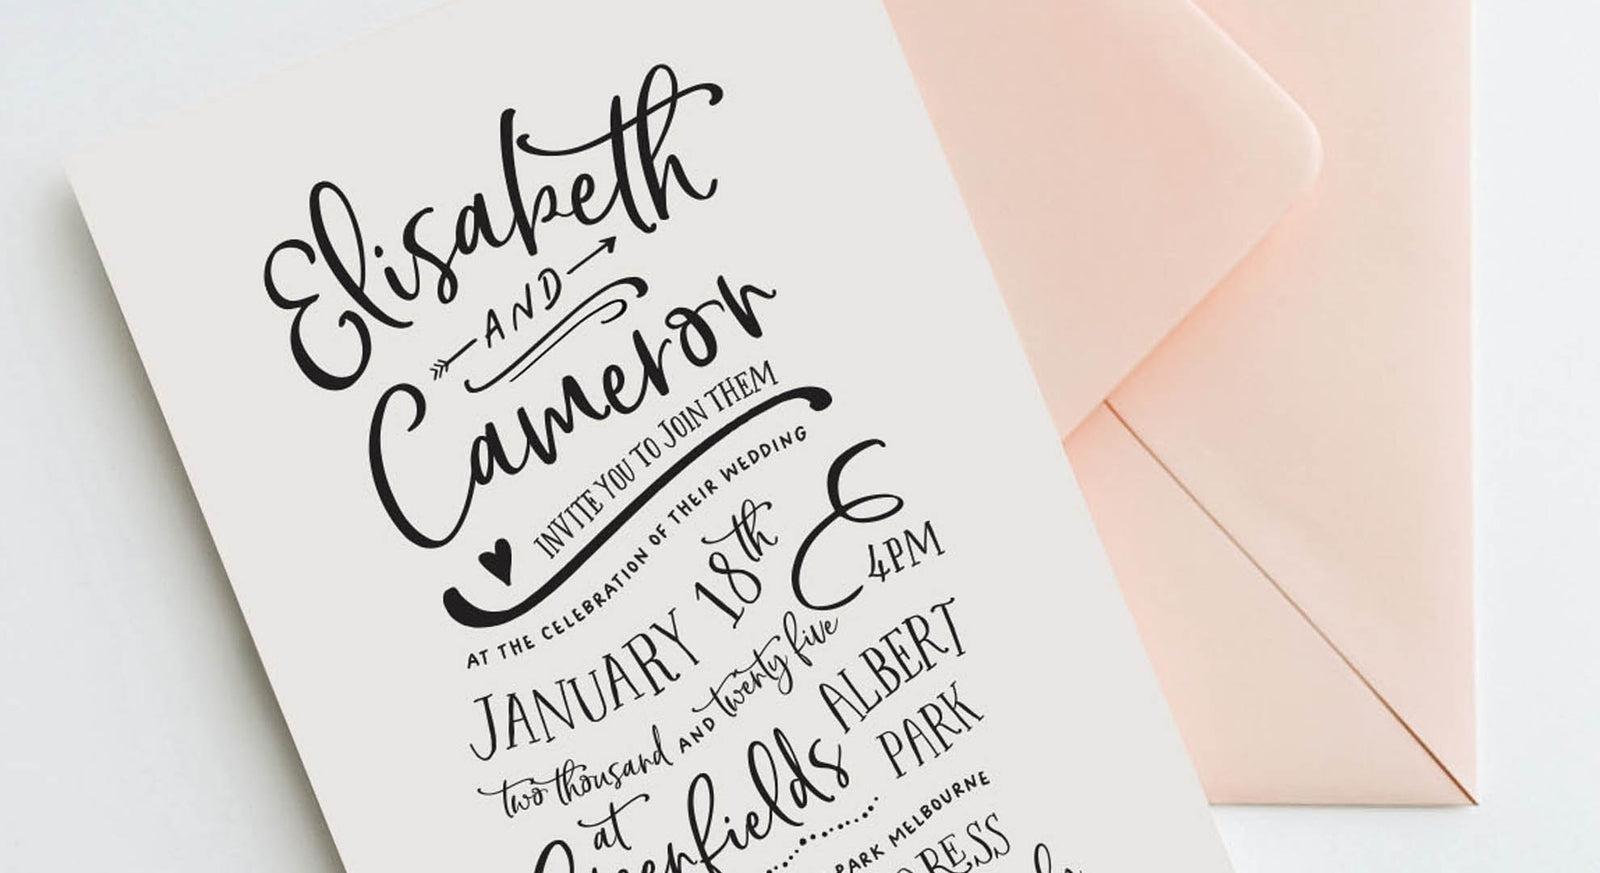 Elisabeth
AND
Cameron
INVITE YOU TO JOIN THEM
AT THE CELEBRATION OF THEIR WEDDING
JANUARY 18th
4PM
two thousand AND twenty five
at
Greenfields
ALBERT
PARK
PARK MELBOURNE